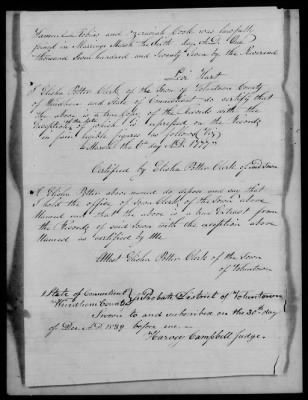 and Zerviah Cook was lawfully
joined in Marriage March the Sixth day A.D. One
thousand Seven hundred and Seventy Seven by the Reverend
Levi Hart
I Elisha Potter Clerk of the Town of Voluntown County
of Windham and State of Connecticut do certify that
the above is a true Copy of the Records with the
exception of the date which is expressed on the Records
in fair legible figures as follows (Viz)
March the 6th day A.D. 1777
Certified by Elisha Potter Clerk of said Town
I Elisha Potter above named do depose and say that
I hold the office of Town Clerk of the Town above
Named and that the above is a true Extract from
the Records of said Town with the exception above
Named as certified by Me
Attest Elisha Potter Clerk of the Town
of Voluntown
State of Connecticut
Windham County
Probate District of Voluntown
Sworn to and subscribed on the 30th day
of Dec A.D 1839 before me
Harvey Campbell Judge